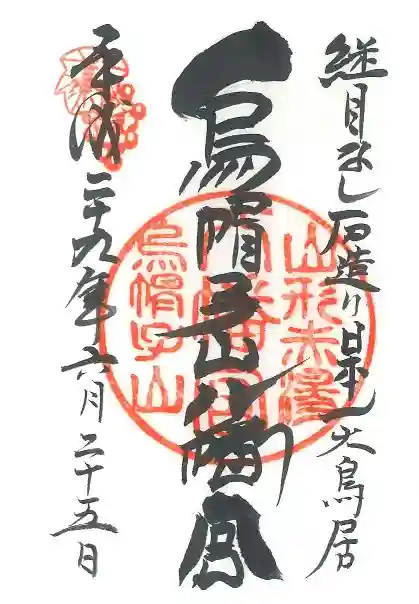 継目なし石造り日本一大鳥居
烏帽子山八幡宮
平成二十九年六月二十五日
山形赤湯
八幡宮
烏帽子山